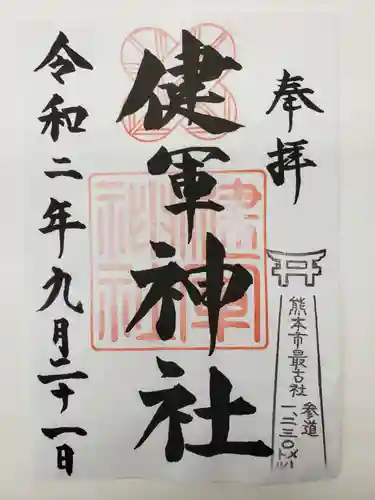 奉拝
熊本市最古社
参道
一、二三〇メートル
健軍神社
令和二年九月二十一日